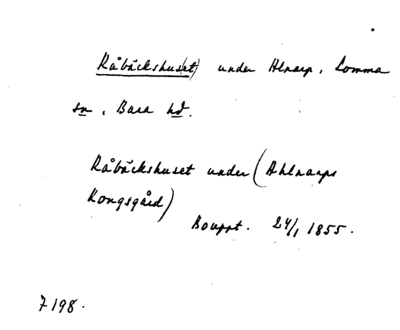 Råbäckshuset) under Alnarp, Lomma
sn, Bara hd.
Råbäckshuset under (Ahlnarps
Kongsgård)
Bouppt. 24/1 1855.
7198.